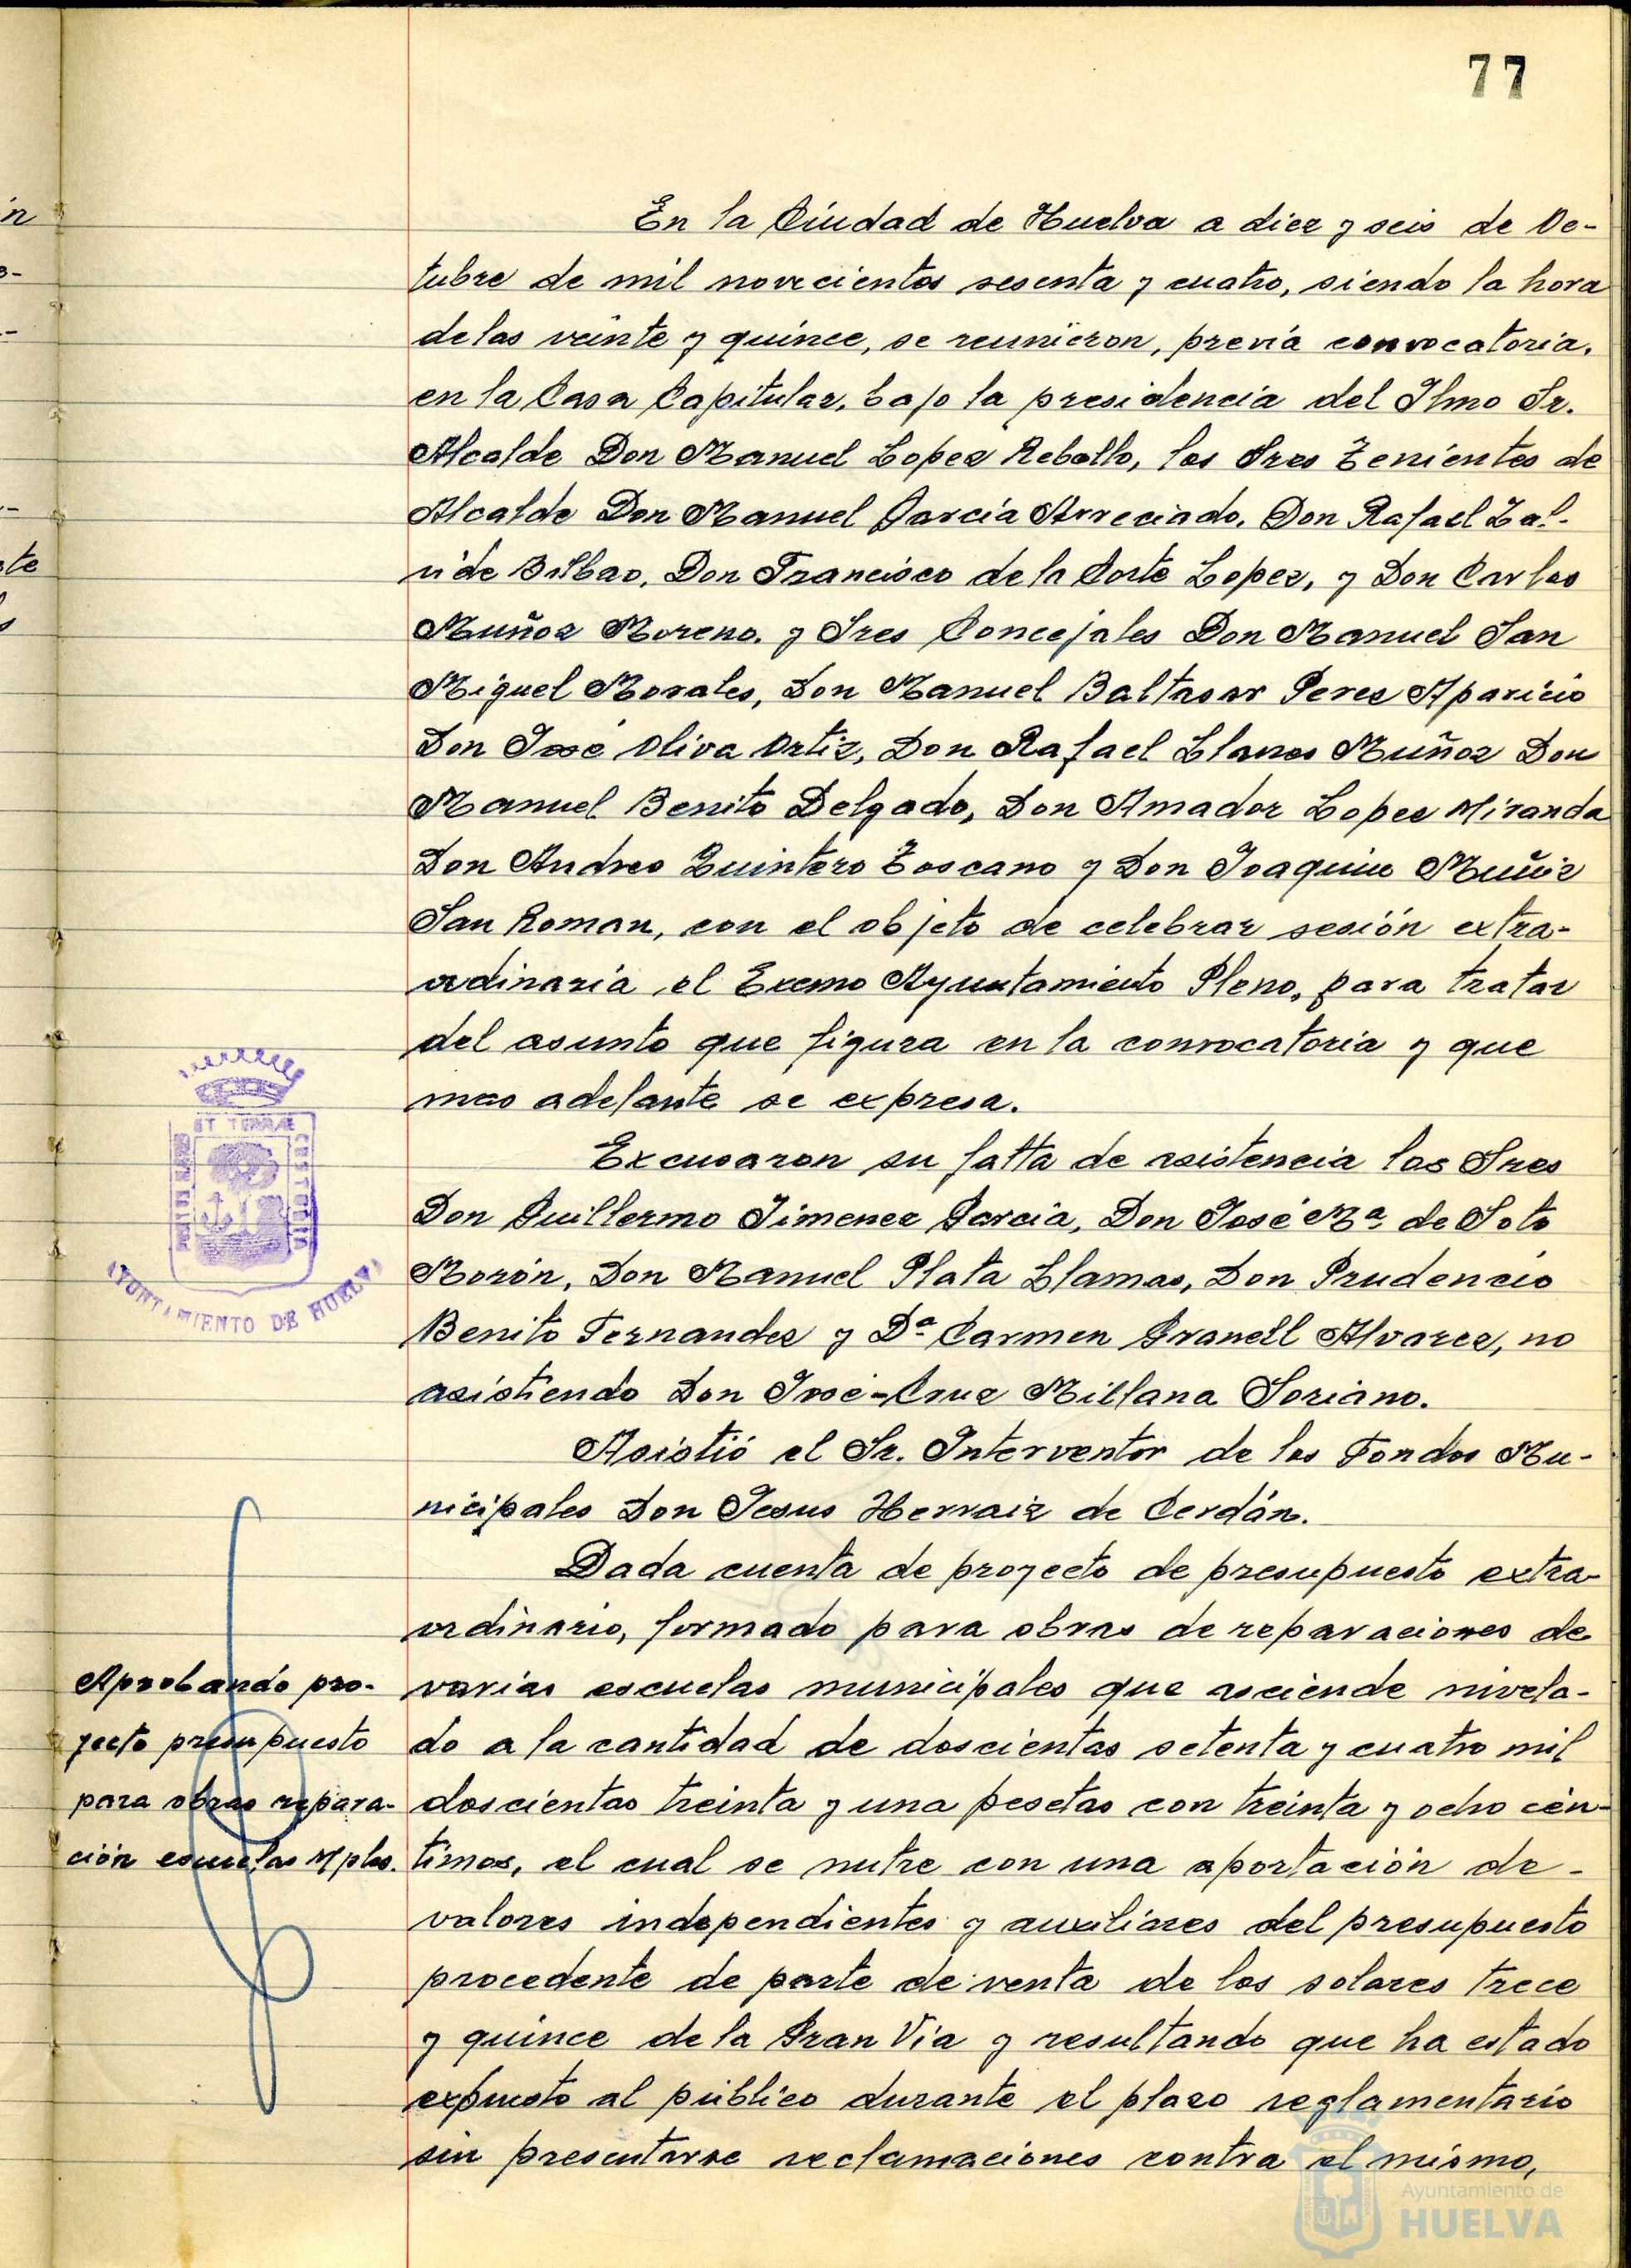 77
En la Ciudad de Huelva a diez y seis de Oc-
tubre de mil novecientos sesenta y cuatro, siendo la hora
de las veinte y quince, se reunieron, previa convocatoria,
en la Casa Capitular, bajo la presidencia del Ilmo Sr.
Alcalde Don Manuel Lopez Rebollo, los Sres Tenientes de
Alcalde Don Manuel Garcia Arreciado, Don Rafael Zal-
vide Bilbao, Don Francisco de la Corte Lopez, y Don Carlos
Muñoz Moreno, y Sres Concejales Don Manuel San
Miguel Morales, Don Manuel Baltasar Perez Aparicio
Don José Oliva Ortiz, Don Rafael Llanes Muñoz Don
Manuel Benito Delgado, Don Amador Lopez Miranda
Don Andres Quintero Toscano y Don Joaquin Muñiz
San Roman, con el objeto de celebrar sesión extra-
ordinaria el Excmo Ayuntamiento Pleno, para tratar
del asunto que figura en la convocatoria y que
mas adelante se expresa.
Excusaron su falta de asistencia los Sres
Don Guillermo Jimenez Garcia, Don José Mª de Soto
Morón, Don Manuel Plata Llamas, Don Prudencio
Benito Fernandez y Dª Carmen Granell Alvarez, no
asistiendo Don José-Cruz Millana Soriano.
Asistió el Sr. Interventor de los Fondos Mu-
nicipales Don Jesus Hervaiz de Cerdán.
Dada cuenta de proyecto de presupuesto extra-
ordinario, formado para obras de reparaciones de
varias escuelas municipales que asciende nivela-
do a la cantidad de doscientas setenta y cuatro mil
doscientas treinta y una pesetas con treinta y ocho cén-
timos, el cual se nutre con una aportación de-
valores independientes y auxiliares del presupuesto
procedente de parte de venta de los solares trece
y quince de la Gran Via y resultando que ha estado
expuesto al público durante el plazo reglamentario
sin presentarse reclamaciones contra el mismo,
Aprobando pro-
yecto presupuesto
para obras repara-
ción escuelas Mples.
ET TERRAE
AYUNTAMIENTO DE HUELVA
Ayuntamiento de
HUELVA